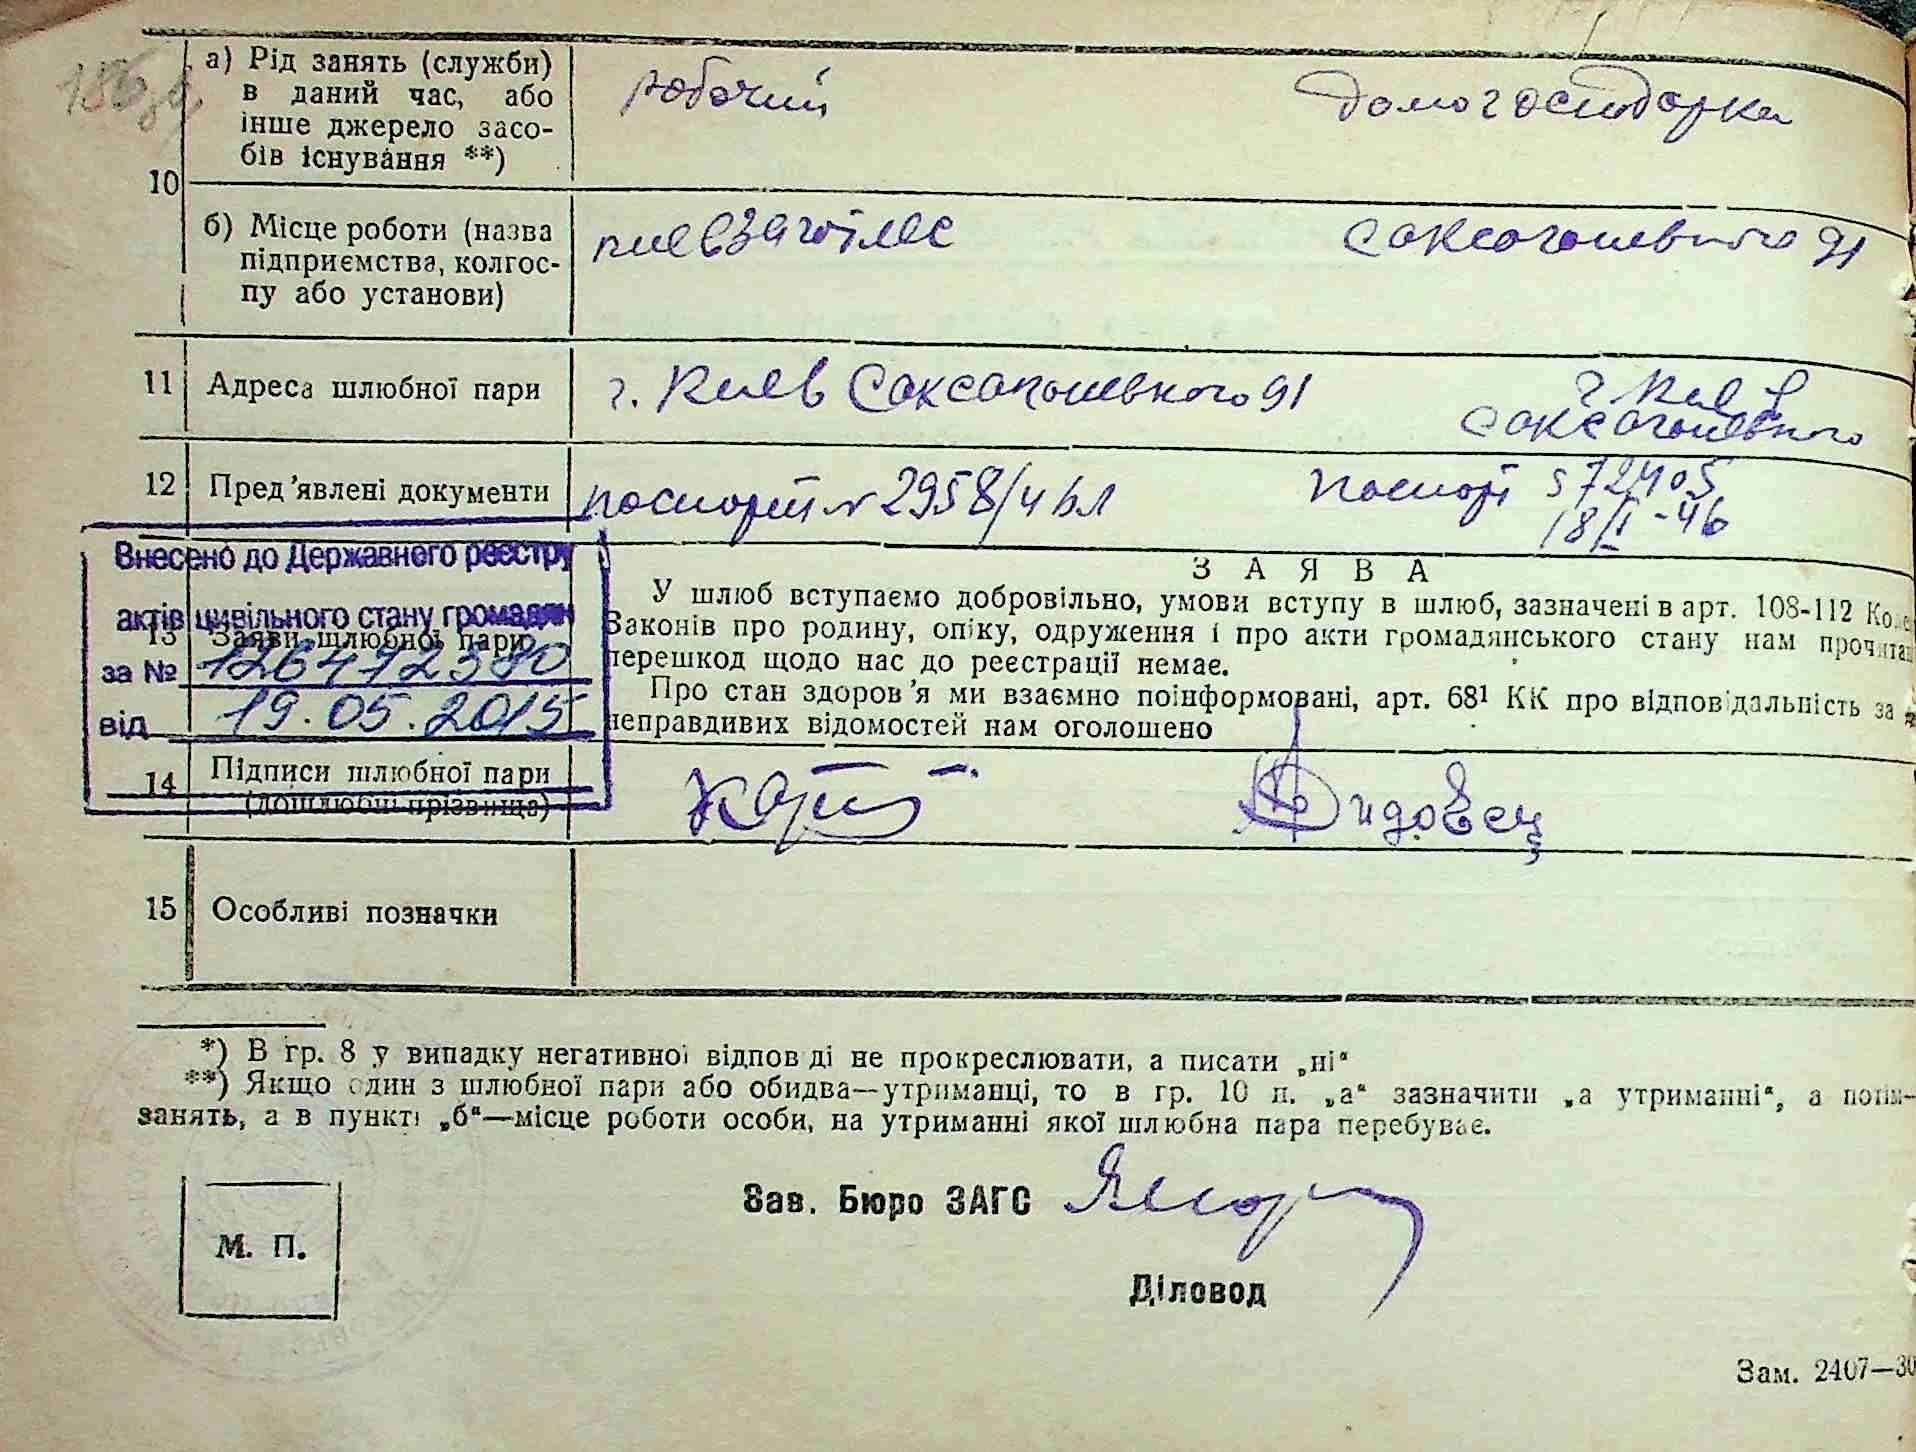 а) Рід занять (служби)
в даний час, або
інше джерело засо-
бів існування **)
робочий домогосподарка
10
б) Місце роботи (назва
підприємства, колгос-
пу або установи)
киевзаготлес Саксоганьского 91
11 Адреса шлюбної пари
г. Киев Саксоганьского 91
г. Киев
Саксоганьского
12 Пред'явлені документи
паспорт № 2958/4 паспорт 572405
18/I-46
Внесено до Державного реєстру
актів цивільного стану громадян
за № 1264792380
від 19.05.2015
13 Заяви шлюбної пари
ЗАЯВА
У шлюб вступаємо добровільно, умови вступу в шлюб, зазначені в арт. 108-112
Законів про родину, опіку, одруження і про акти громадянського стану нам прочитан
перешкод щодо нас до реєстрації немає.
Про стан здоров'я ми взаємно поінформовані, арт. 68¹ КК про відповідальність за
неправдивих відомостей нам оголошено
14 Підписи шлюбної пари
(дошлюбні прізвища)
Дидовец
15 Особливі позначки
*) В гр. 8 у випадку негативної відпов ді не прокреслювати, а писати „ні“
**) Якщо один з шлюбної пари або обидва—утриманці, то в гр. 10 п. „а“ зазначити „а утриманні“, а потім—
занять, а в пункті „б“—місце роботи особи, на утриманні якої шлюбна пара перебуває.
Зав. Бюро ЗАГС
М. П.
Діловод
Зам. 2407—30